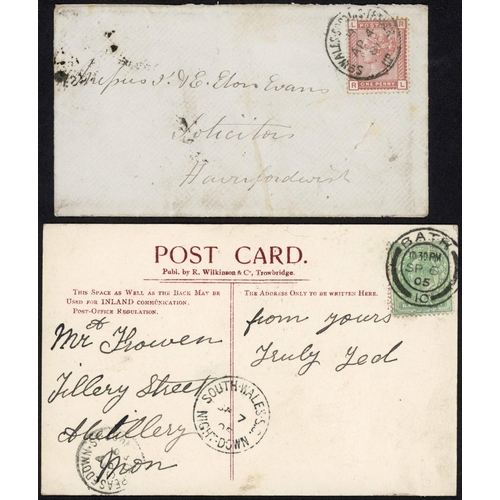 R L
POSTAGE
ONE PENNY
R L
AP 4
& E. Eton Evans
Solicitors
Haverfordwest
POST CARD.
Publ. by R. Wilkinson & Co, Trowbridge.
THIS SPACE AS WELL AS THE BACK MAY BE
USED FOR INLAND COMMUNICATION.
POST-OFFICE REGULATION.
THE ADDRESS ONLY TO BE WRITTEN HERE.
BATH
10.30PM
SP 6
05
10
Mr A Trowen
Tillery Street
Abertillery
Mon
from yours
Truly Ted
SOUTH-WALES
7
NIGHT-DOWN
PEASEDOWN